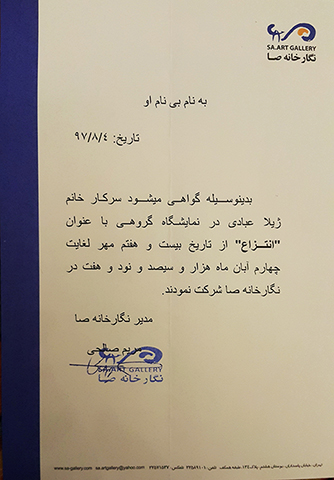 SA.ART GALLERY
نگارخانه صا
به نام بی نام او
تاریخ: ۹۷/۸/۴
بدینوسیله گواهی میشود سرکار خانم
ژیلا عبادی در نمایشگاه گروهی با عنوان
"انتزاع" از تاریخ بیست و هفتم مهر لغایت
چهارم آبان ماه هزار و سیصد و نود و هفت در
نگارخانه صا شرکت نمودند.
مدیر نگارخانه صا
مریم صالحی
SA.ART GALLERY
نگارخانه صا
تهران، خیابان پاسداران، بوستان هشتم، پلاک ۱۳۴، طبقه همکف
www.sa-gallery.com sa.artgallery@yahoo.com